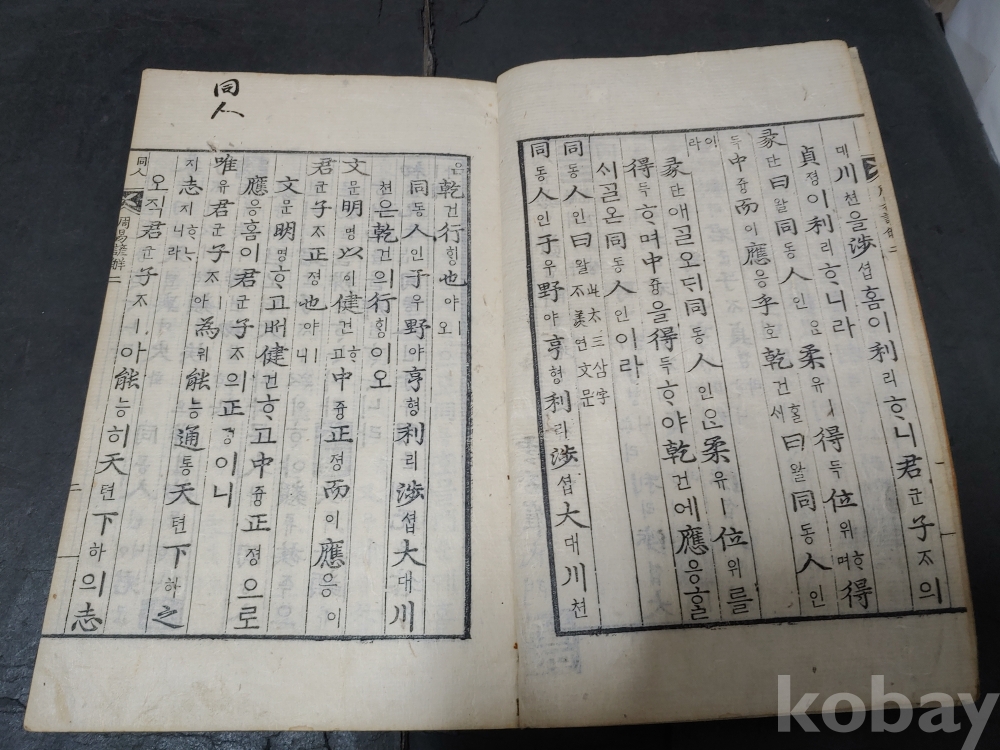 대川쳔을涉셥홈이利리ᄒᆞ니君군子ᄌᆞ의
貞졍이利리ᄒᆞ니라
彖단曰왈同동人인요柔유ㅣ得득位위ᄒᆞ며得
득中듕而이應응乎호乾건ᄒᆞᆯᄉᆡ曰왈同동人인
이라
彖단애ᄀᆞᆯ오ᄃᆡ同동人인은柔유ㅣ位위를
得득ᄒᆞ며中듕을得득ᄒᆞ야乾건에應응ᄒᆞᆯ
ᄉᆡᄀᆞᆯ온同동人인이라
同동人인曰왈 三삼字 羨연文문
同동人인于우野야亨형利리涉셥大대川쳔
同人
은乾건行ᄒᆡᆼ也야ㅣ오
同동人인于우野야亨형利리涉셥大대川
쳔은乾건의行ᄒᆡᆼ이오
文문明명以이健건ᄒᆞ고中듕正졍而이應응이
君군子ᄌᆞ正졍也야ㅣ니
文문明명ᄒᆞ고ᄡᅥ健건ᄒᆞ고中듕正졍으로
應응홈이君군子ᄌᆞ의正졍이니
唯유君군子ᄌᆞㅣ아爲위能능通통天텬下하之
지志지ᄒᆞᄂᆞ니라
오직君군子ᄌᆞㅣ아能능히天텬下하의志
同人 周易諺解二 二
kobay